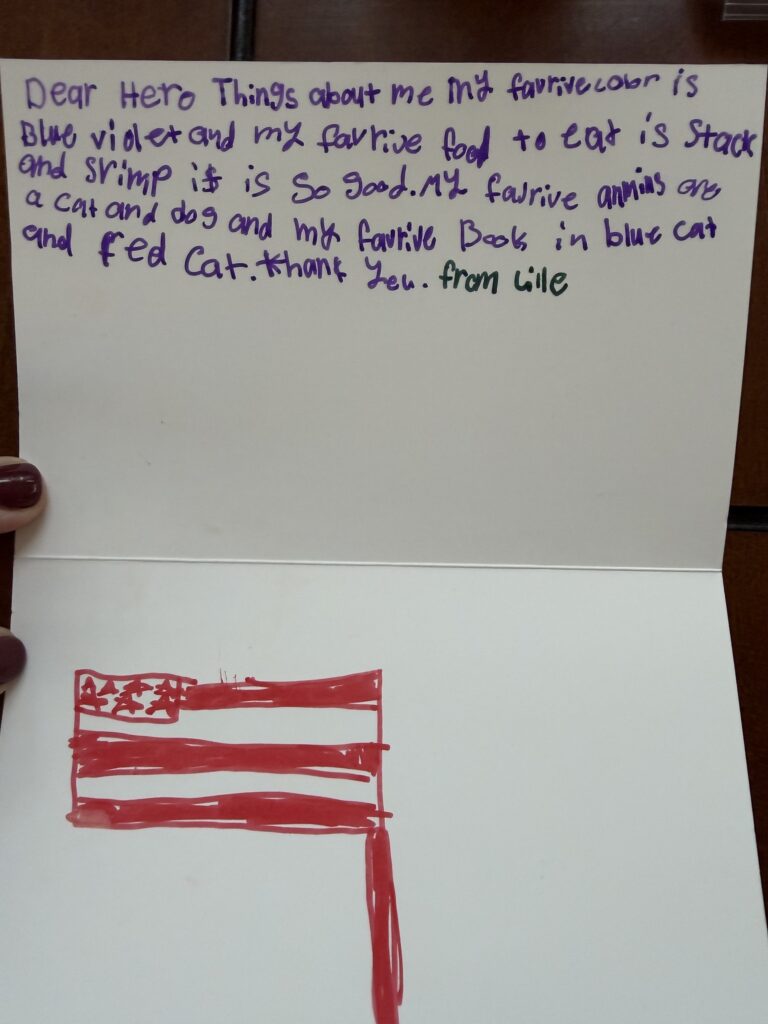 Dear Hero Things about me my favrive color is
Blue violet and my favrive food to eat is Stack
and srimp it is so good. My favrive anmins are
a cat and dog and my favrive Book in blue cat
and red Cat. thank you. from Lille